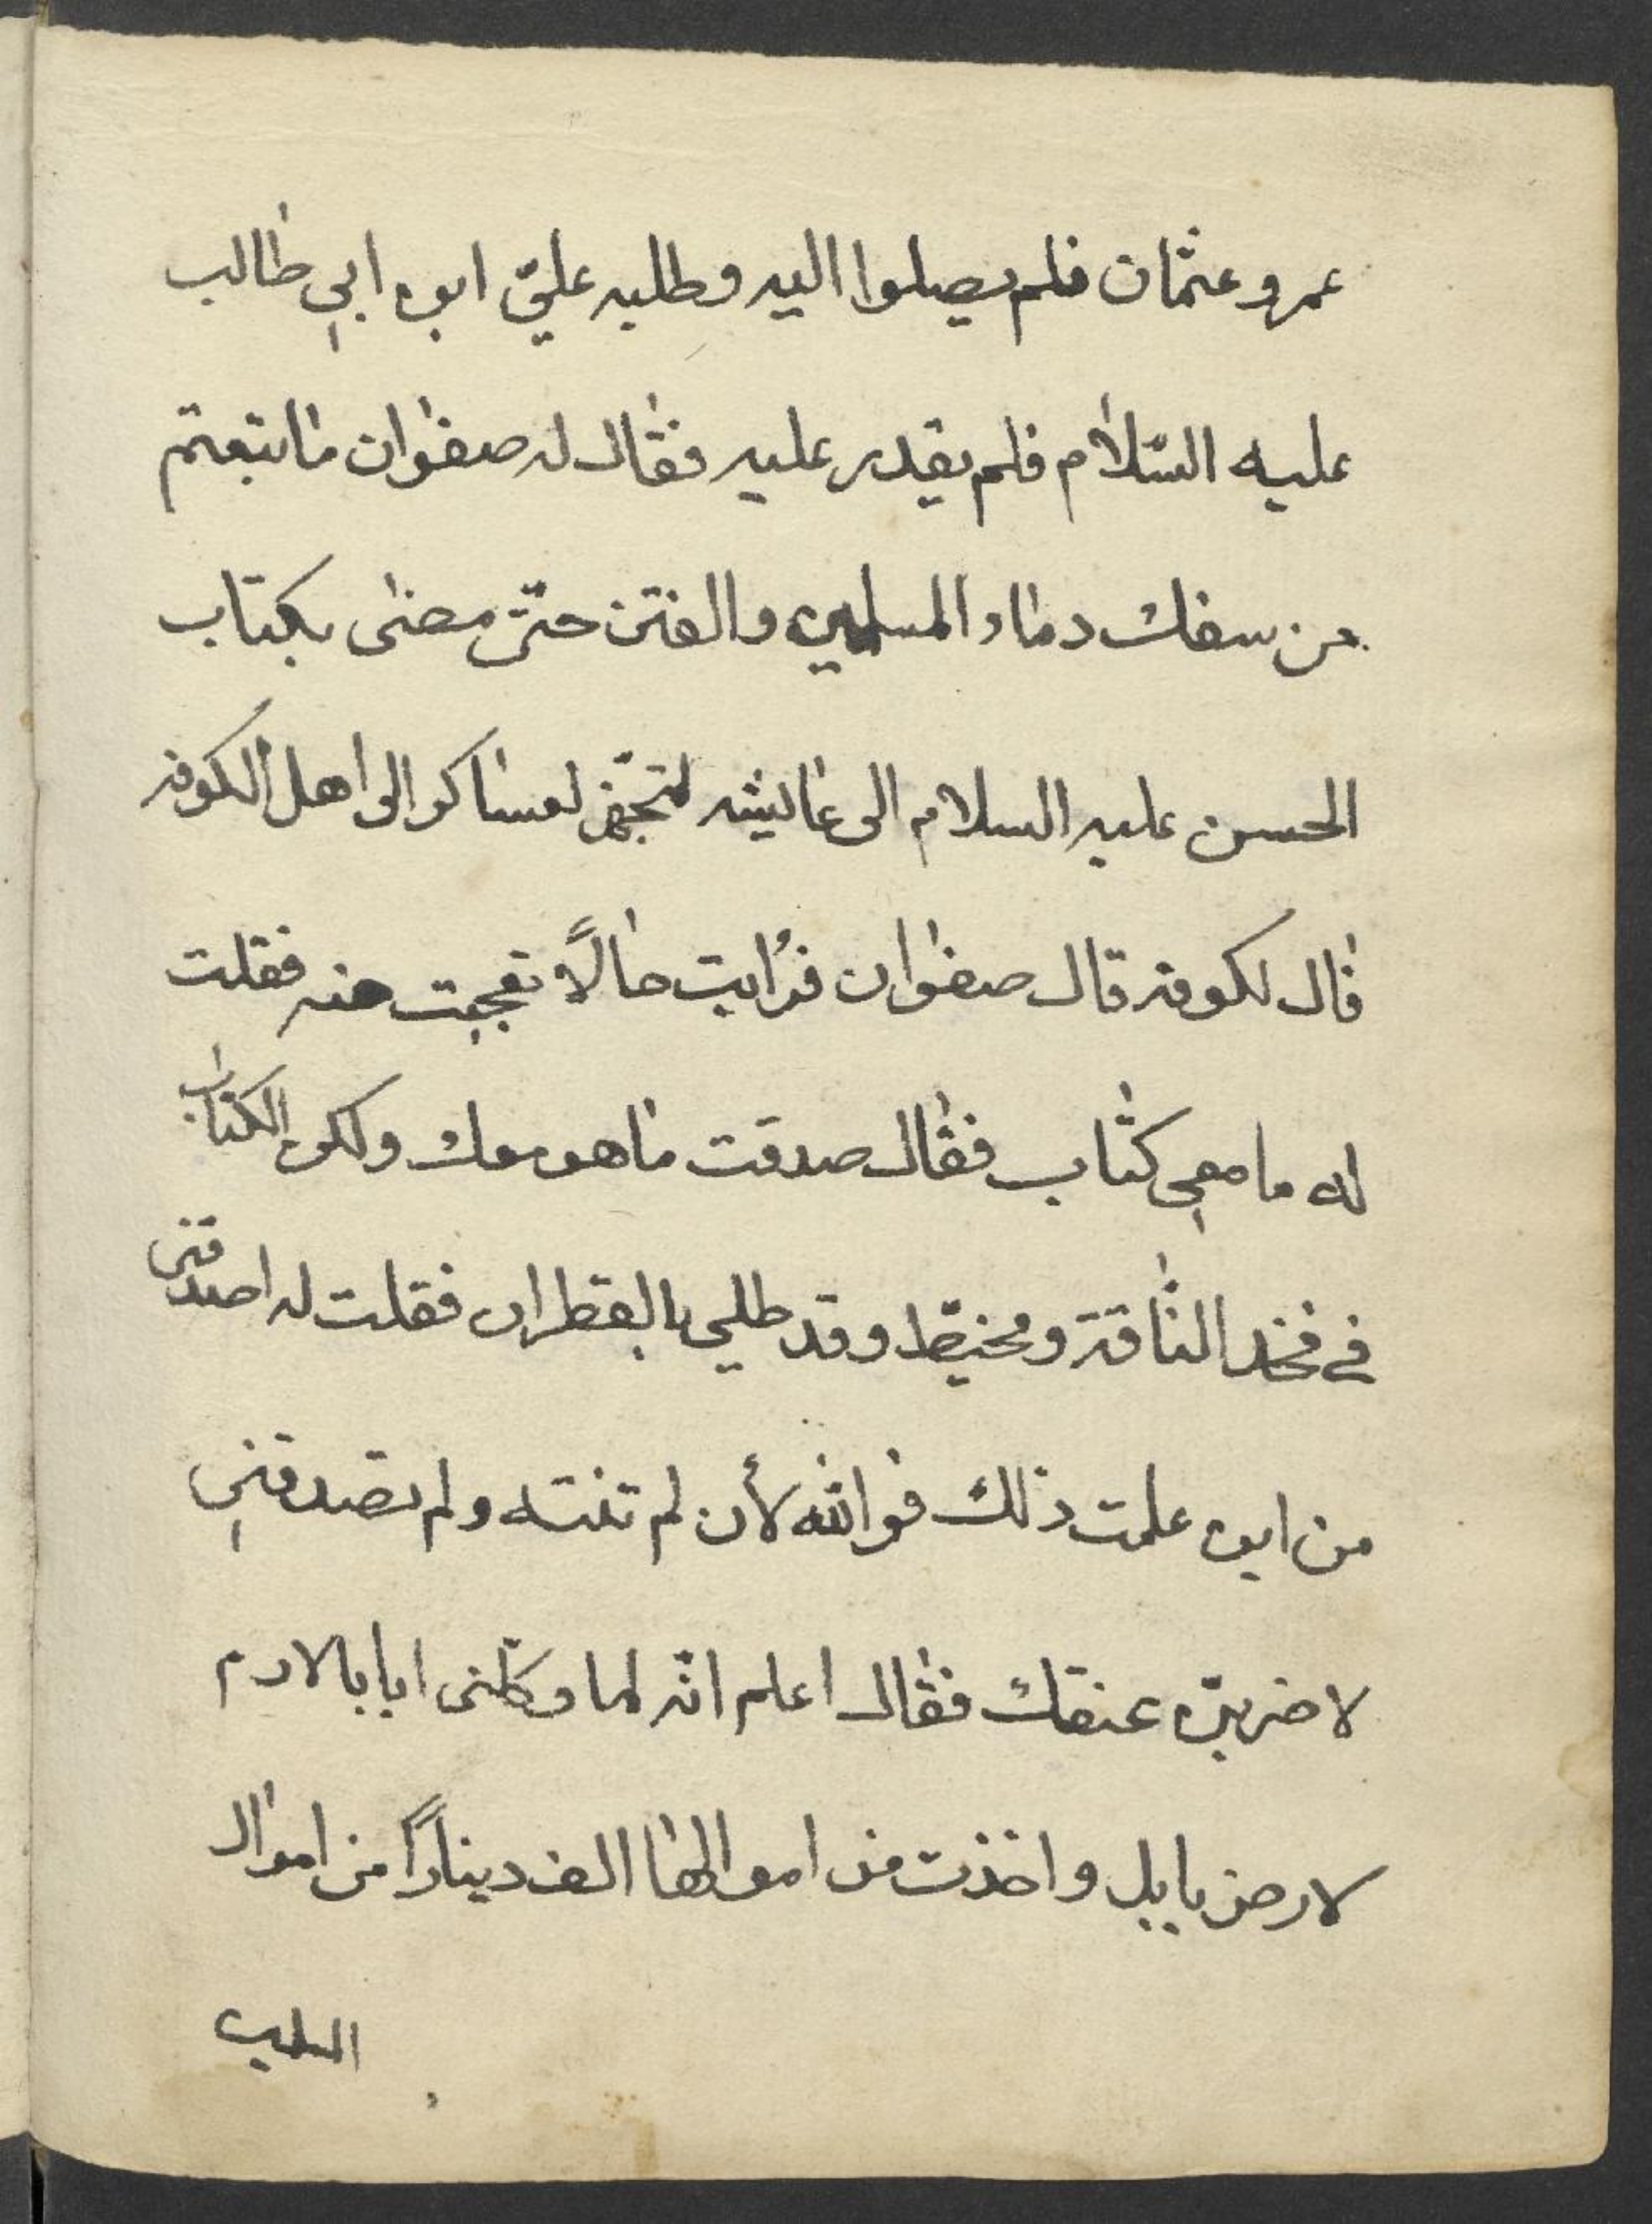 عمر وعثمان فلم يصلوا اليه وطلبه عليّ ابن ابي طالب
عليه السّلام فلم يقدر عليه فقال له صفوان ما بتعتم
من سفك دماء المسلمين والفتن حتّى مضى بكتاب
الحسن عليه السلام الى عايشه لتجهّز لعساكر الى اهل الكوفه
قال لكوفه قال صفوان فرأيت حالاً تعجبت منه فقلت
له ما معي كتاب فقال صدقت ما هو معك ولكن الكتاب
في فخد الناقة ومخيّط وقد طلي بالقطران فقلت له اصدقني
من اين علمت ذلك فوالله لأن لم تفته ولم تصدقني
لاضربنّ عنقك فقال اعلم انّه لما وكلني ابا بالادم
لارض بابل واخذت من اموالها الف ديناراً من اموال